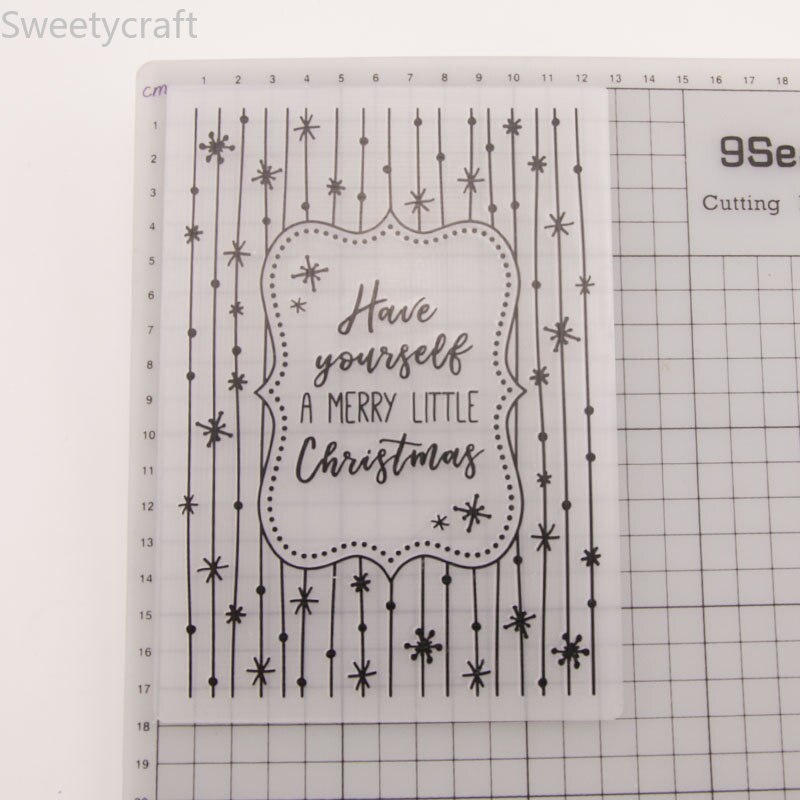 Sweetycraft
cm
1 2 3 4 5 6 7 8 9 10 11 12 13 14 15 16 17 18
1
2
3
4
5
6
7
8
9
10
11
12
13
14
15
16
17
18
19
9Se
Cutting
Have
yourself
A MERRY LITTLE
Christmas